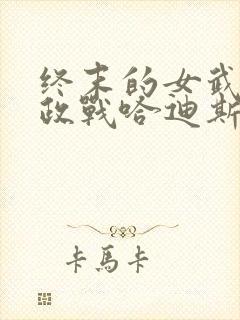 终末的女武
政戰哈迪斯
卡馬卡